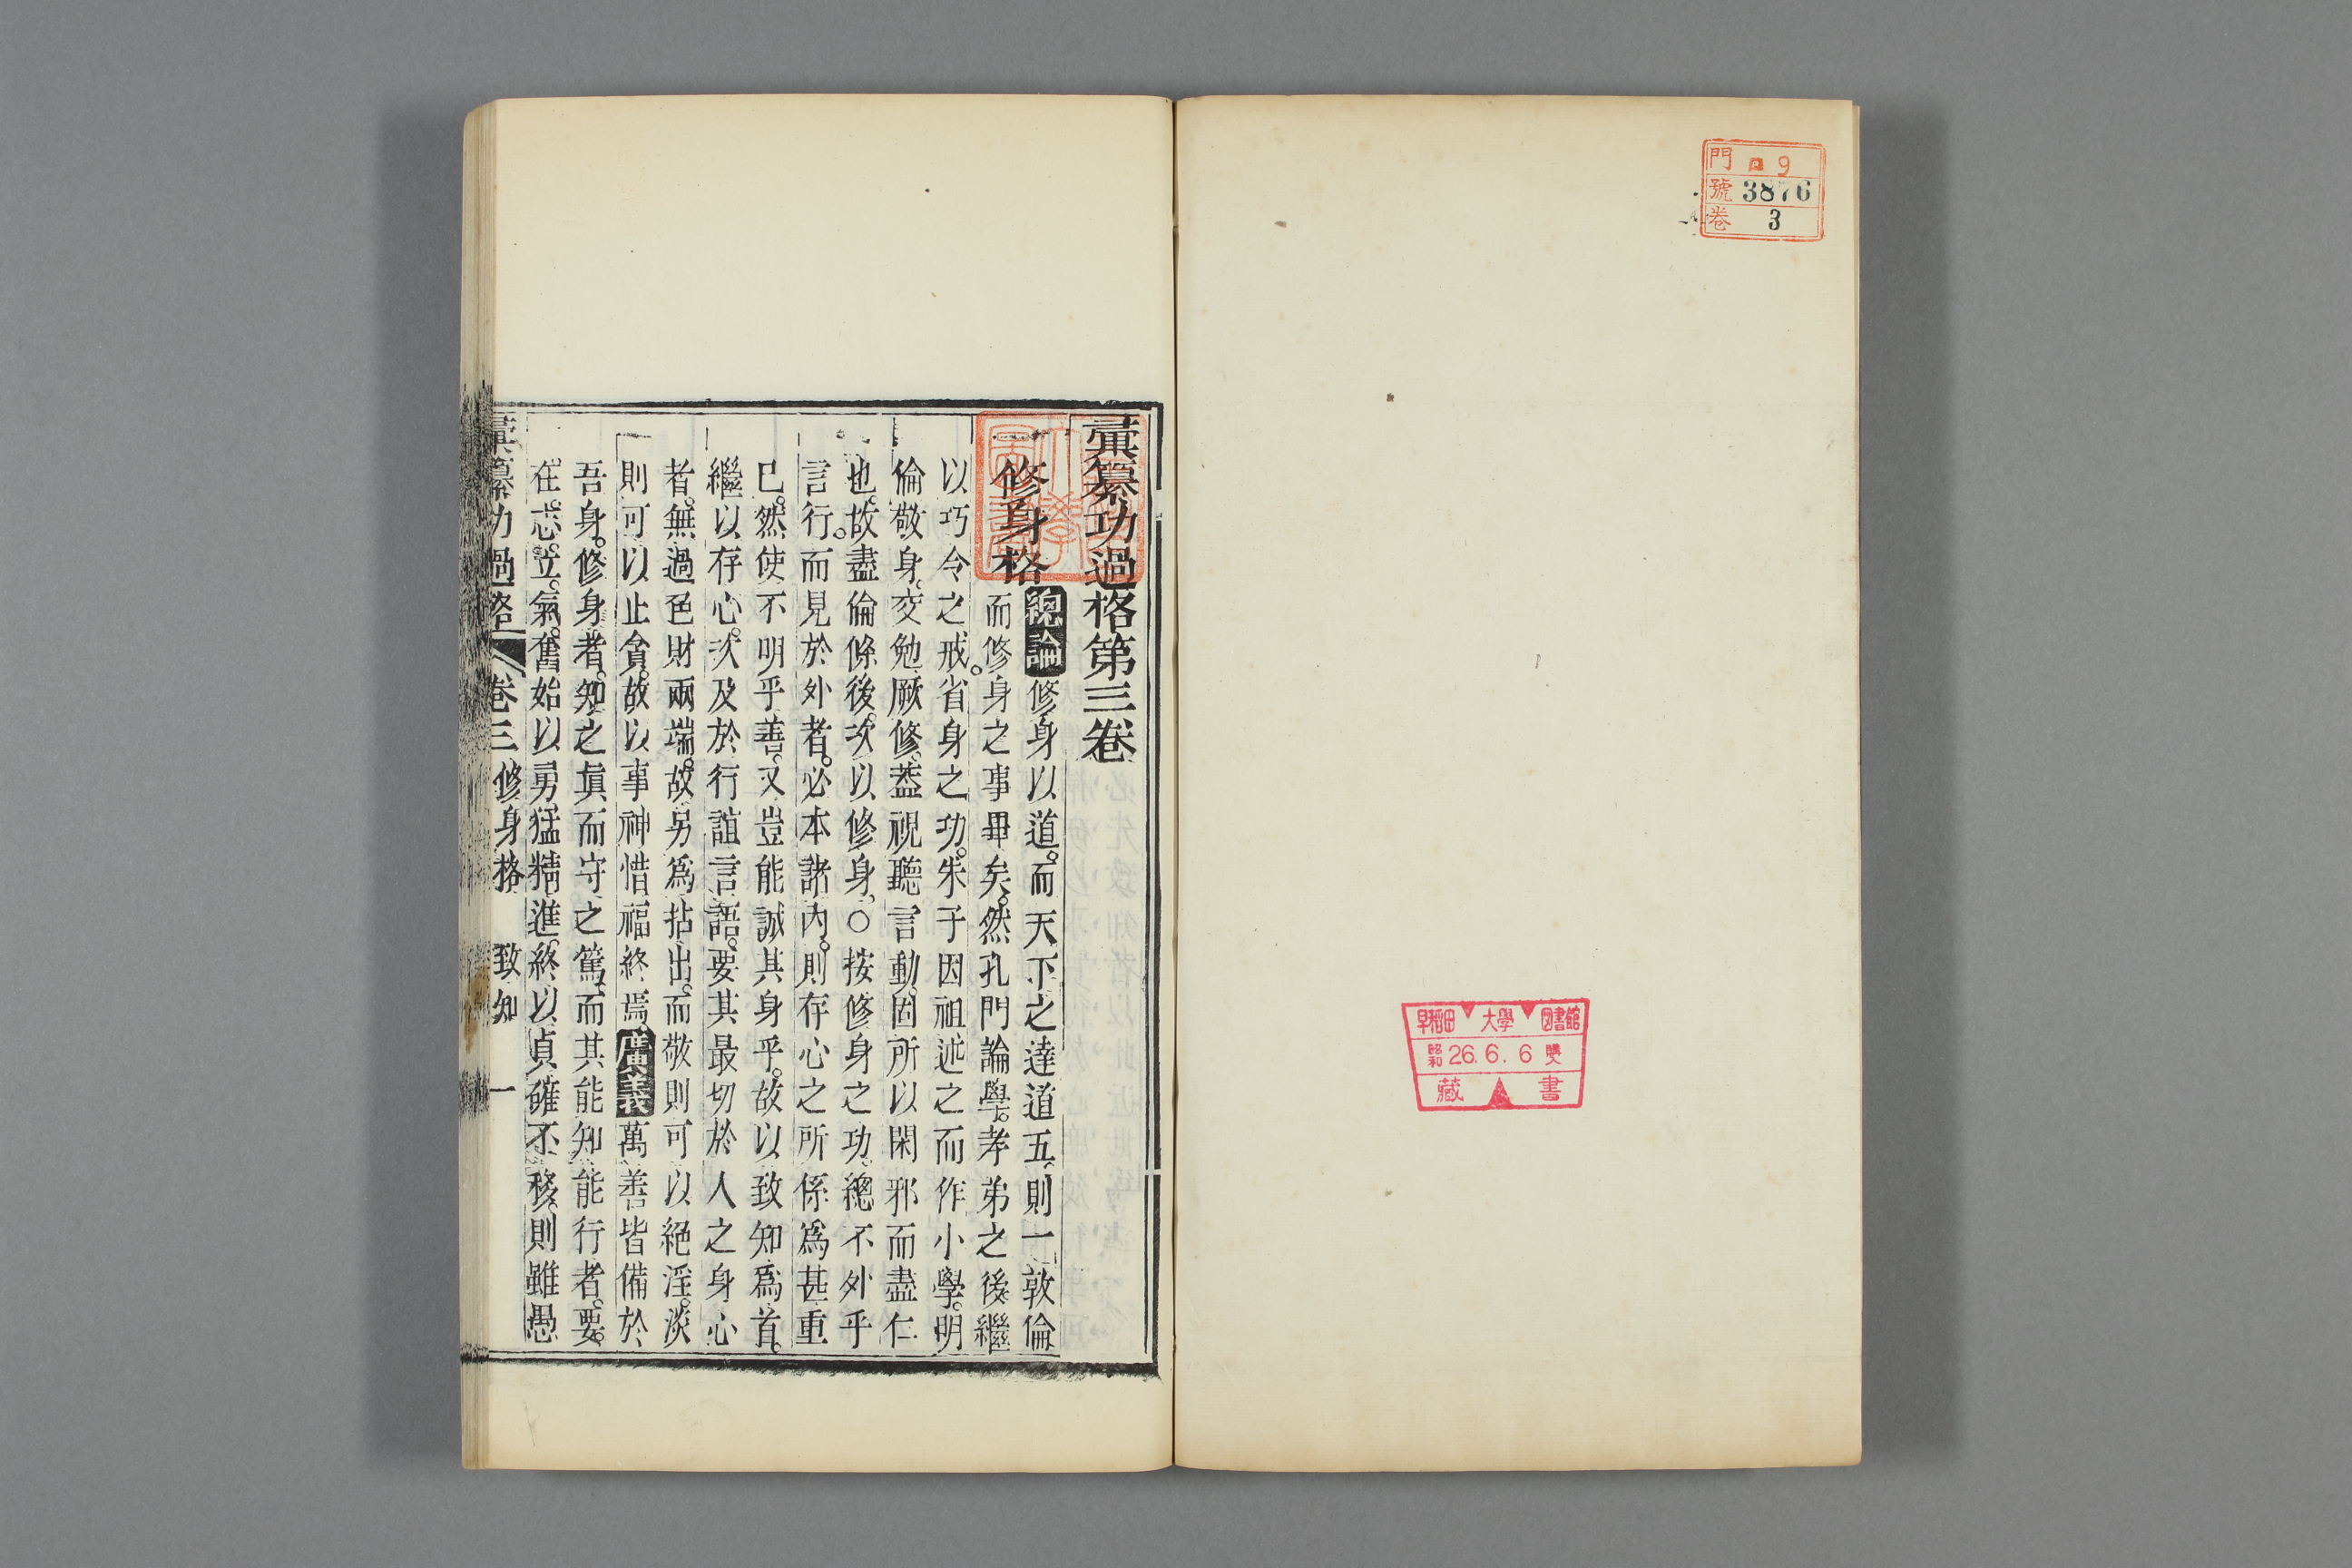 門 ロ 9
號 3876
卷 3
早稲田 大學 圖書館
昭和 26.6.6 雙
藏書
彙纂功過格第三卷
修身格 總論 修身以道。而天下之達道五。則一敦倫
而修身之事畢矣。然孔門論學。孝弟之後繼
以巧令之戒。省身之功。朱子因祖述之而作小學。明
倫敬身。交勉厥修。葢視聽言動。固所以閑邪而盡仁
也。故盡倫條後。次以修身。○按修身之功。總不外乎
言行。而見於外者。必本諸內。則存心之所係爲甚重
已。然使不明乎善。又豈能誠其身乎。故以致知爲首。
繼以存心。次及於行誼言語。要其最切於人之身心
者。無過色財兩端。故另爲拈出。而敬則可以絕淫。淡
則可以止貪。故以事神惜福終焉。廣義 萬善皆備於
吾身。修身者。知之真而守之篤。而其能知能行者。要
在。志。立。氣。奮始以勇猛精進。終以貞確不移。則雖愚
彙纂功過格 卷三 修身格 致知 一